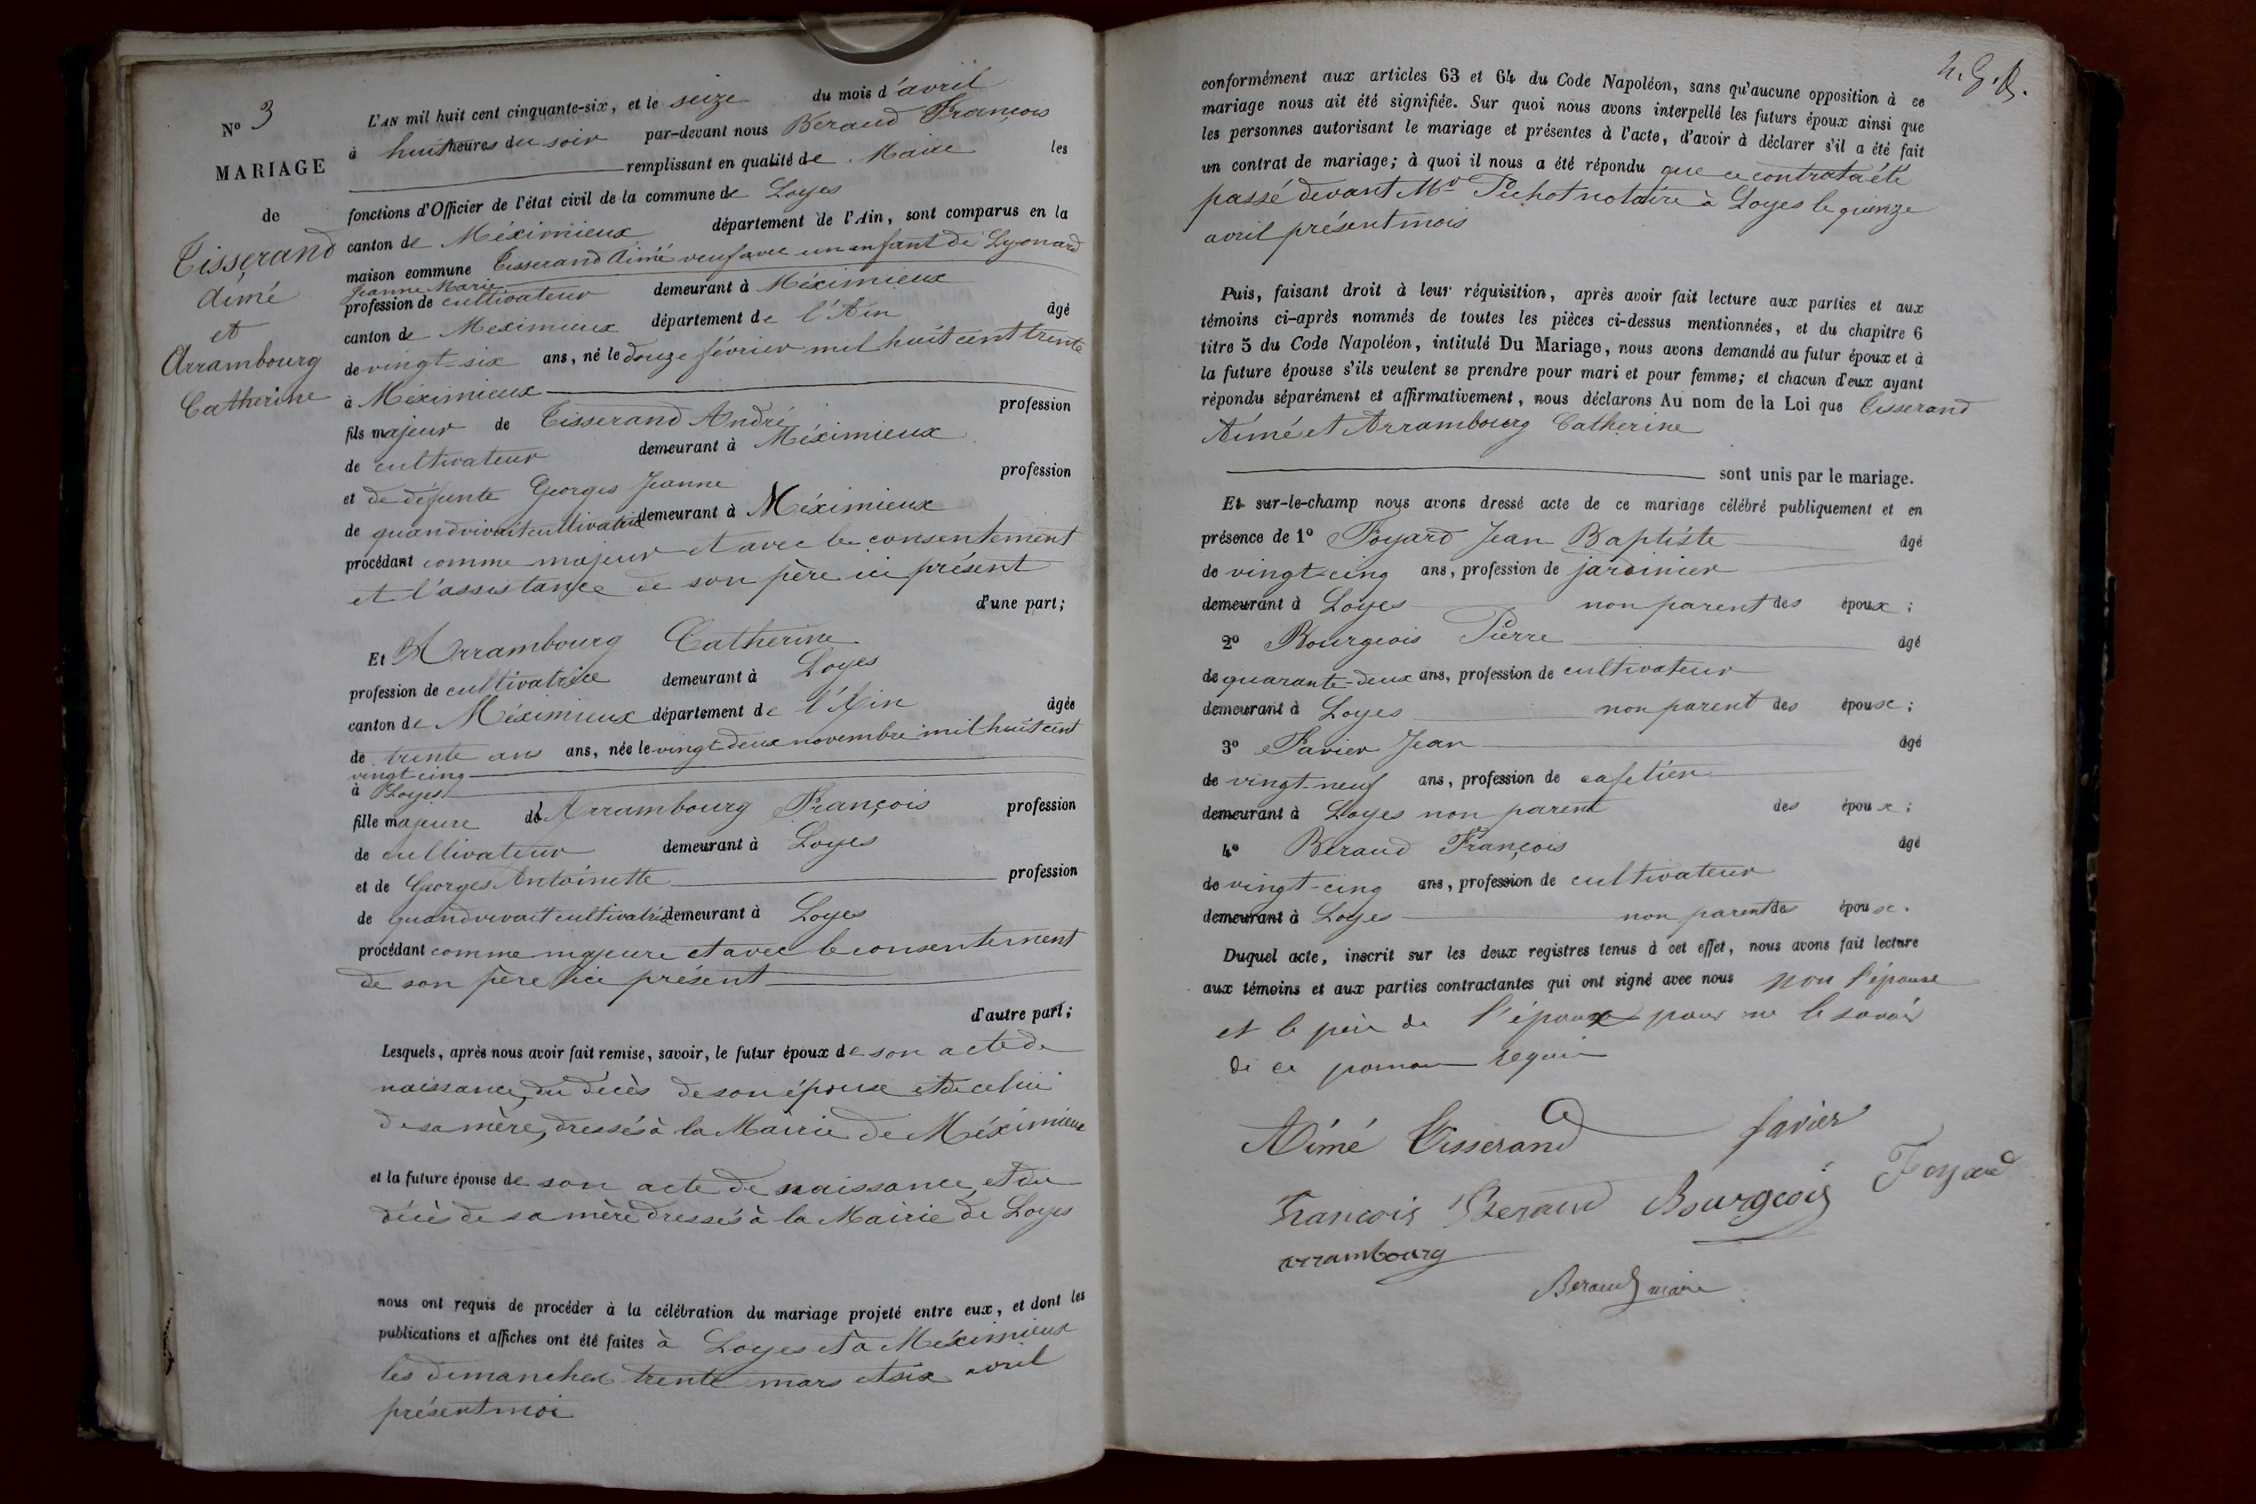 N° 3
MARIAGE
de
Tisserand
Aimé
et
Arrambourg
Catherine
L'AN mil huit cent cinquante-six, et le seize du mois d'avril
à huit heures du soir par-devant nous Béraud François
remplissant en qualité de Maire les
fonctions d'Officier de l'état civil de la commune de Loyes
canton de Méximieux département de l'Ain, sont comparus en la
maison commune Tisserand Aimé veuf avec un enfant de Lyonard
Jeanne Marie
profession de cultivateur demeurant à Méximieux
canton de Méximieux département de l'Ain âgé
de vingt six ans, né le douze février mil huit cent trente
à Méximieux
fils majeur de Tisserand André profession
de cultivateur demeurant à Méximieux
et de défunte Georges Jeanne profession
de quand vivait cultivatrice demeurant à Méximieux
procédant comme majeur et avec le consentement
et l'assistance de son père ici présent
d'une part;
Et Arrambourg Catherine
profession de cultivatrice demeurant à Loyes
canton de Méximieux département de l'Ain âgée
de trente ans ans, née le vingt deux novembre mil huit cent
vingt cinq
à Loyes
fille majeure de Arrambourg François profession
de cultivateur demeurant à Loyes
et de Georges Antoinette profession
de quand vivait cultivatrice demeurant à Loyes
procédant comme majeure et avec le consentement
de son père ici présent
d'autre part;
Lesquels, après nous avoir fait remise, savoir, le futur époux de son acte de
naissance, du décès de son épouse et de celui
de sa mère, dressés à la Mairie de Méximieux
et la future épouse de son acte de naissance, et du
décès de sa mère dressés à la Mairie de Loyes
nous ont requis de procéder à la célébration du mariage projeté entre eux, et dont les
publications et affiches ont été faites à Loyes et à Méximieux
les dimanches trente mars et six avril
présent moi
conformément aux articles 63 et 64 du Code Napoléon, sans qu'aucune opposition à ce
mariage nous ait été signifiée. Sur quoi nous avons interpellé les futurs époux ainsi que
les personnes autorisant le mariage et présentes à l'acte, d'avoir à déclarer s'il a été fait
un contrat de mariage; à quoi il nous a été répondu que ce contrat a été
passé devant Me Pichot notaire à Loyes le quinze
avril présent mois
Puis, faisant droit à leur réquisition, après avoir fait lecture aux parties et aux
témoins ci-après nommés de toutes les pièces ci-dessus mentionnées, et du chapitre 6
titre 5 du Code Napoléon, intitulé Du Mariage, nous avons demandé au futur époux et à
la future épouse s'ils veulent se prendre pour mari et pour femme; et chacun d'eux ayant
répondu séparément et affirmativement, nous déclarons Au nom de la Loi que Tisserand
Aimé et Arrambourg Catherine
sont unis par le mariage.
Et sur-le-champ nous avons dressé acte de ce mariage célébré publiquement et en
présence de 1° Foyard Jean Baptiste âgé
de vingt-cinq ans, profession de jardinier
demeurant à Loyes non parent des époux;
2° Bourgeois Pierre âgé
de quarante-deux ans, profession de cultivateur
demeurant à Loyes non parent des époux;
3° Favier Jean âgé
de vingt-neuf ans, profession de cafetier
demeurant à Loyes non parent des époux;
4° Béraud François âgé
de vingt-cinq ans, profession de cultivateur
demeurant à Loyes non parent des époux.
Duquel acte, inscrit sur les deux registres tenus à cet effet, nous avons fait lecture
aux témoins et aux parties contractantes qui ont signé avec nous non l'épouse
et le père de l'époux pour ne le savoir
de ce requis
Aimé Tisserand favier
François Beraud Bourgeois Foyard
arrambourg
Beraud maire